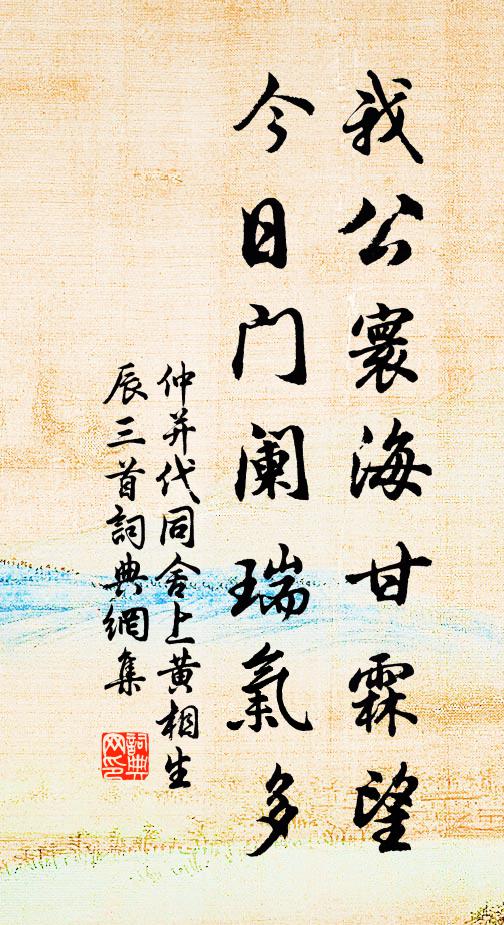 我公寰海甘霖望
今日門闌瑞氣多
仲并代同舍上黄相生
辰三首詞典網集
詞典
网印